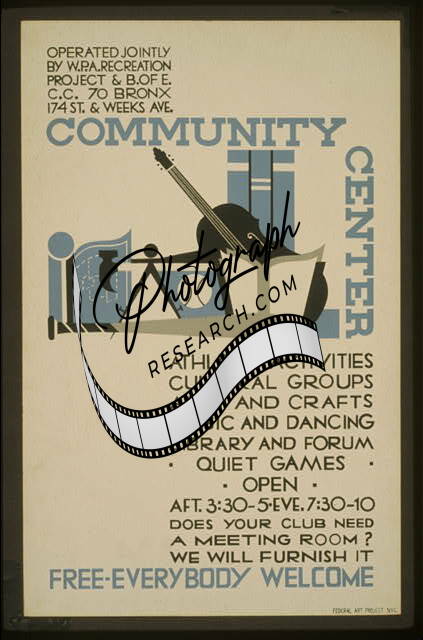 OPERATED JOINTLY
BY W.P.A. RECREATION
PROJECT & B. OF E.
C.C. 70 BRONX
174 ST. & WEEKS AVE.
COMMUNITY
CENTER
Photograph
RESEARCH.COM
GROUPS
AND CRAFTS
AND DANCING
AND FORUM
• QUIET GAMES •
• OPEN •
AFT. 3:30-5-EVE. 7:30-10
DOES YOUR CLUB NEED
A MEETING ROOM?
WE WILL FURNISH IT
FREE-EVERYBODY WELCOME
FEDERAL ART PROJECT N.Y.C.